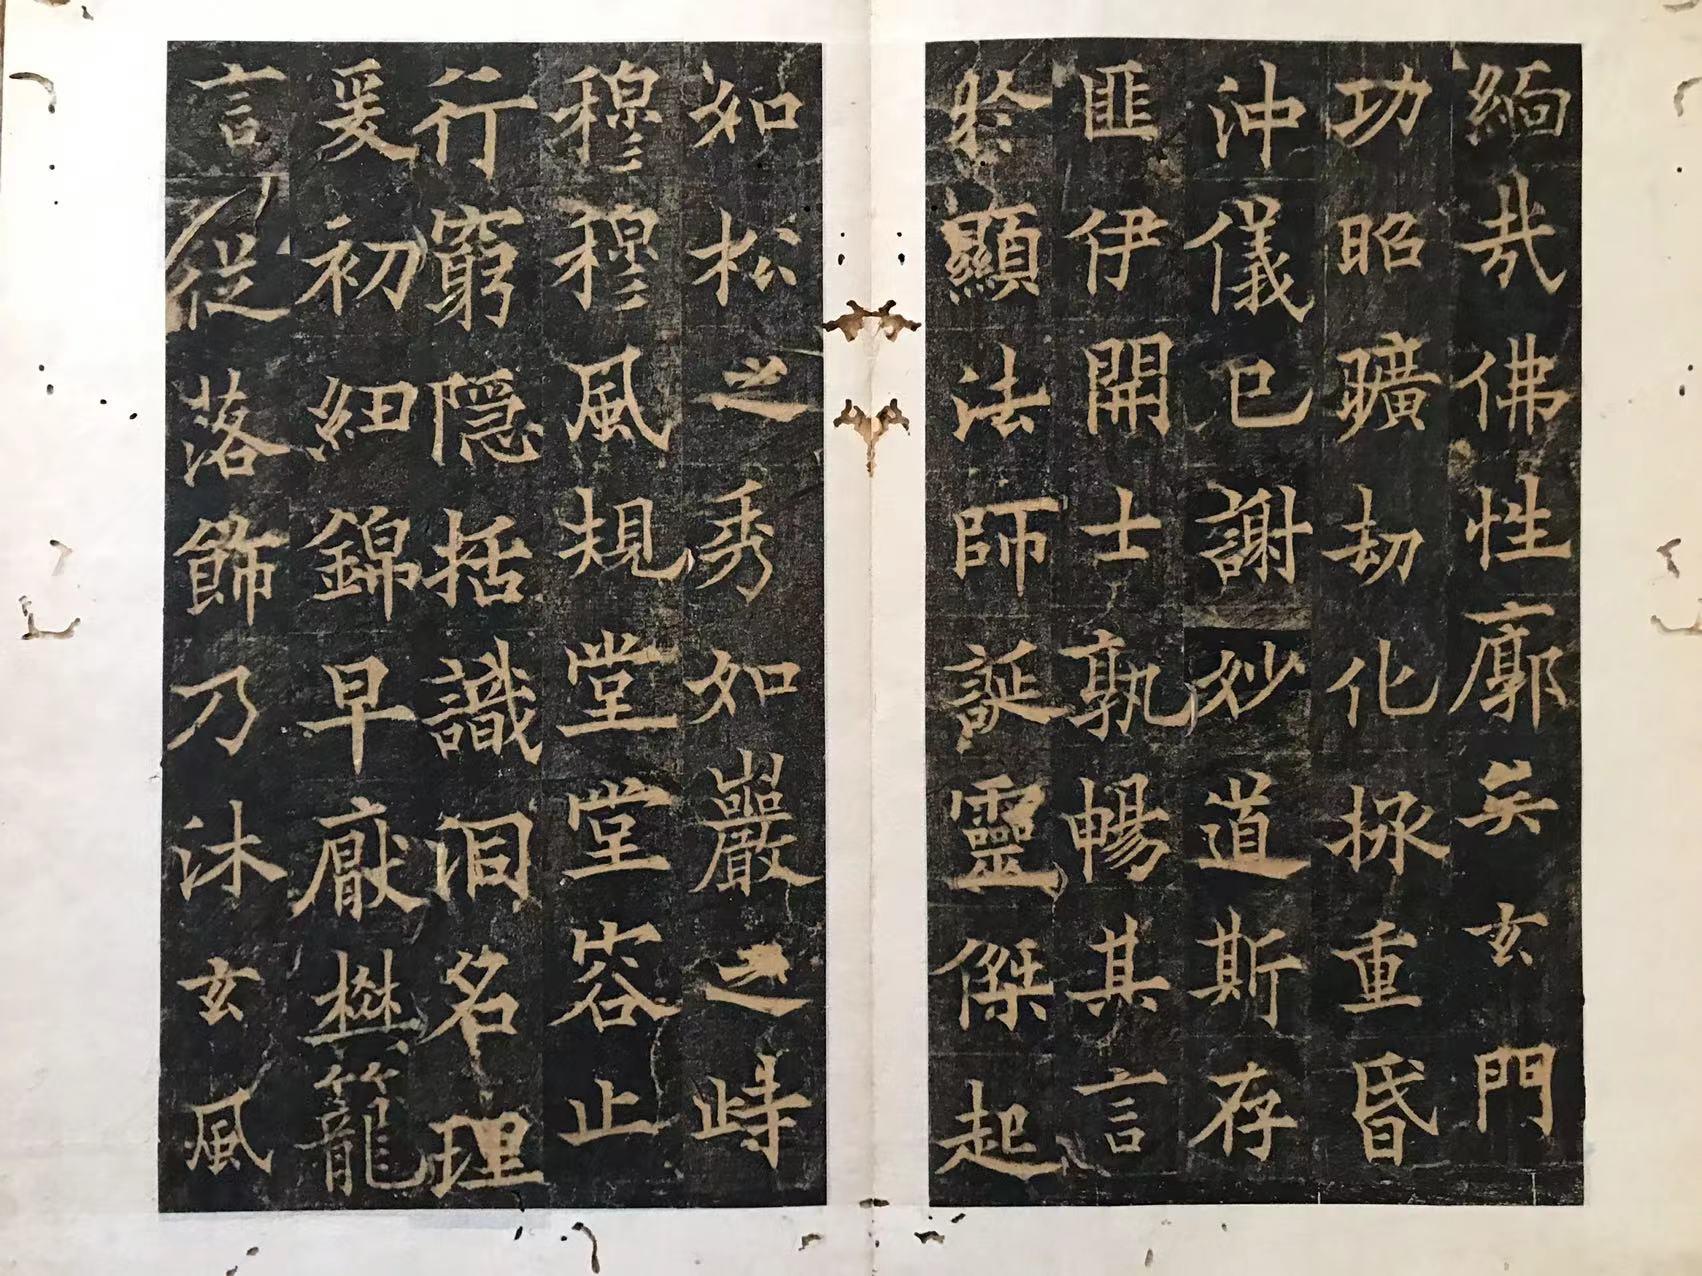 緬哉佛性廓矣玄門
功昭曠劫化拯重昏
沖儀已謝妙道斯存
匪伊開士孰暢其言
於顯法師誕靈傑起
如松之秀如巖之峙
穆穆風規堂堂容止
行窮隱括識洞名理
爰初細錦早厭樊籠
言從落飾乃沐玄風